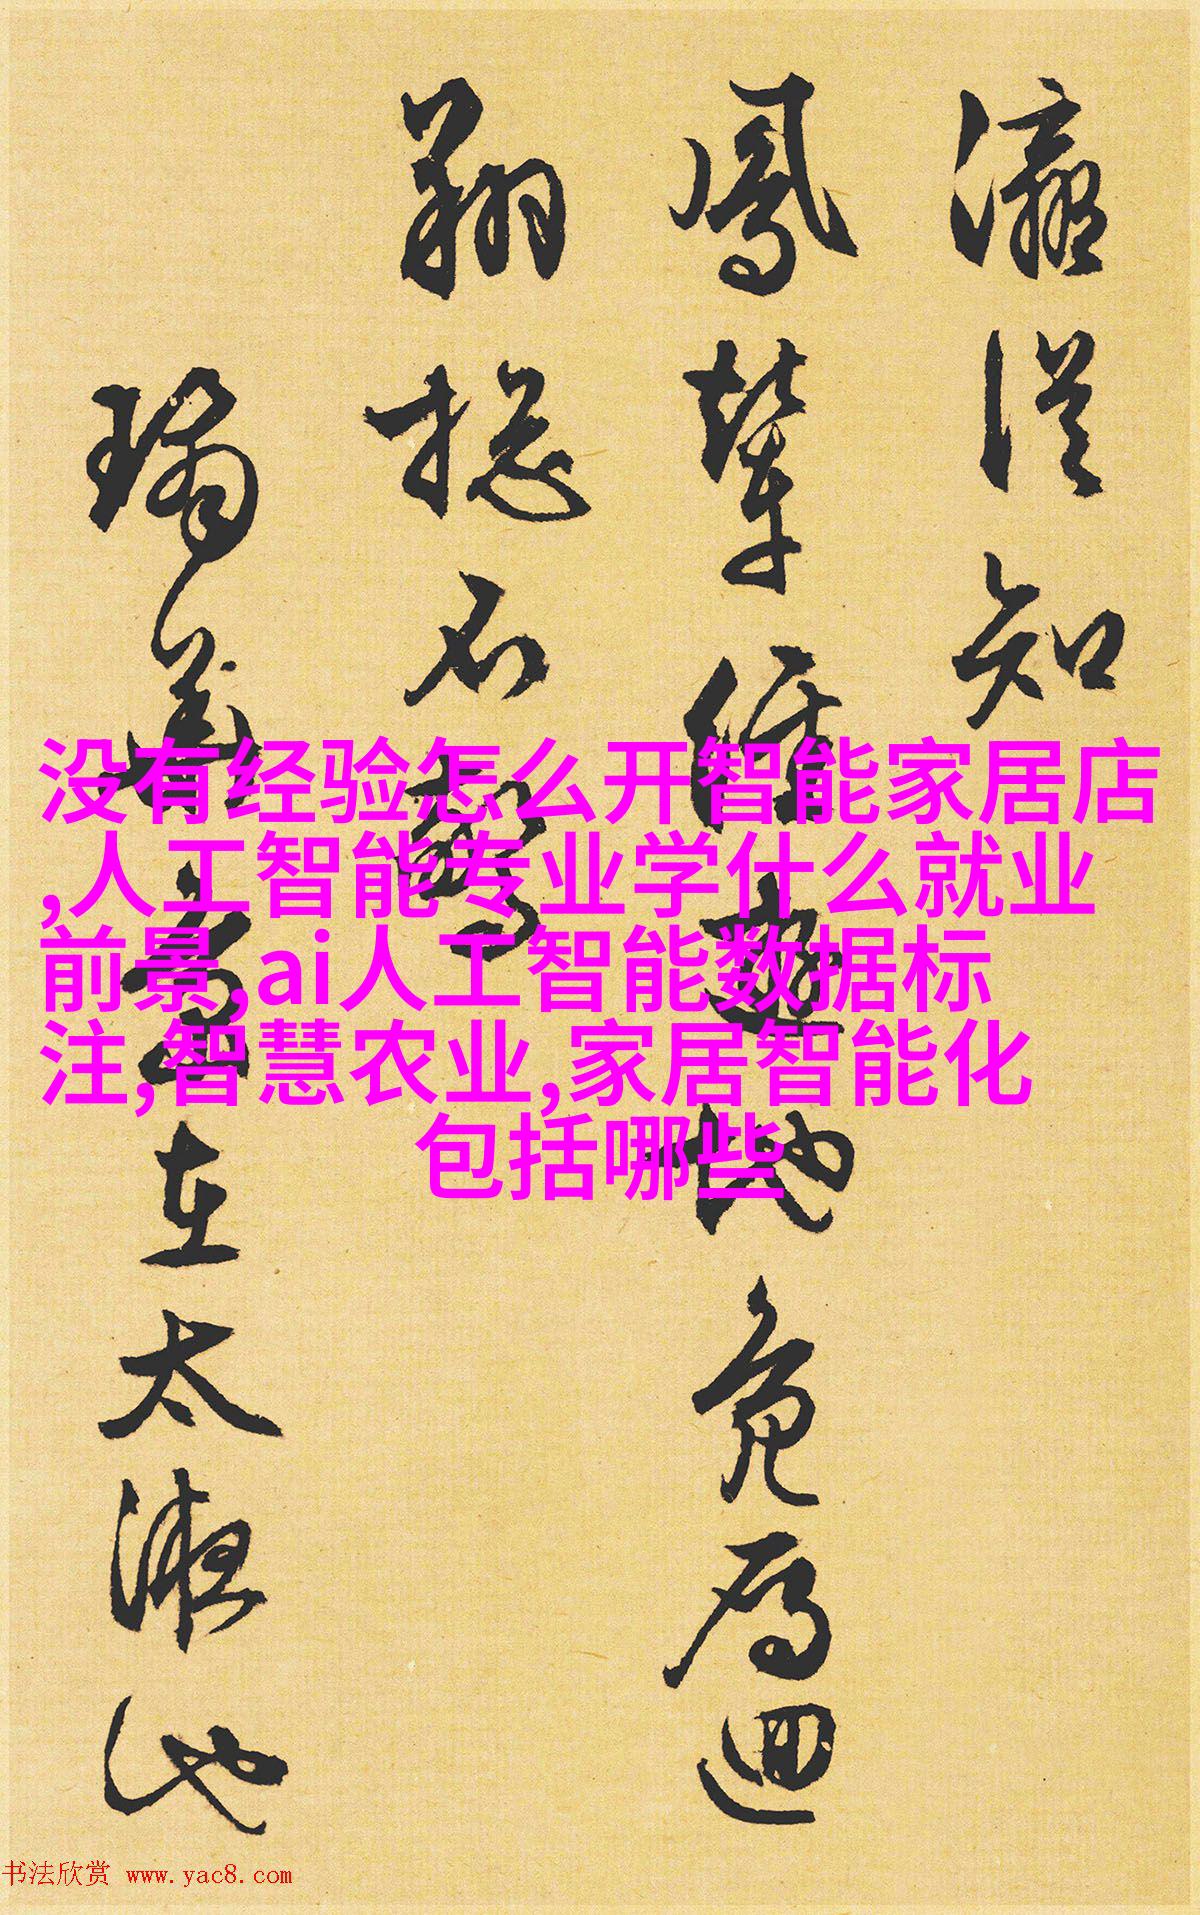 瀛從知
鳳輦經遊地兔雁迴
翔揔不驚
瑞
在太液池
没有经验怎么开智能家居店
,人工智能专业学什么就业
前景,ai人工智能数据标
注,智慧农业,家居智能化
包括哪些
书法欣赏 www.yac8.com